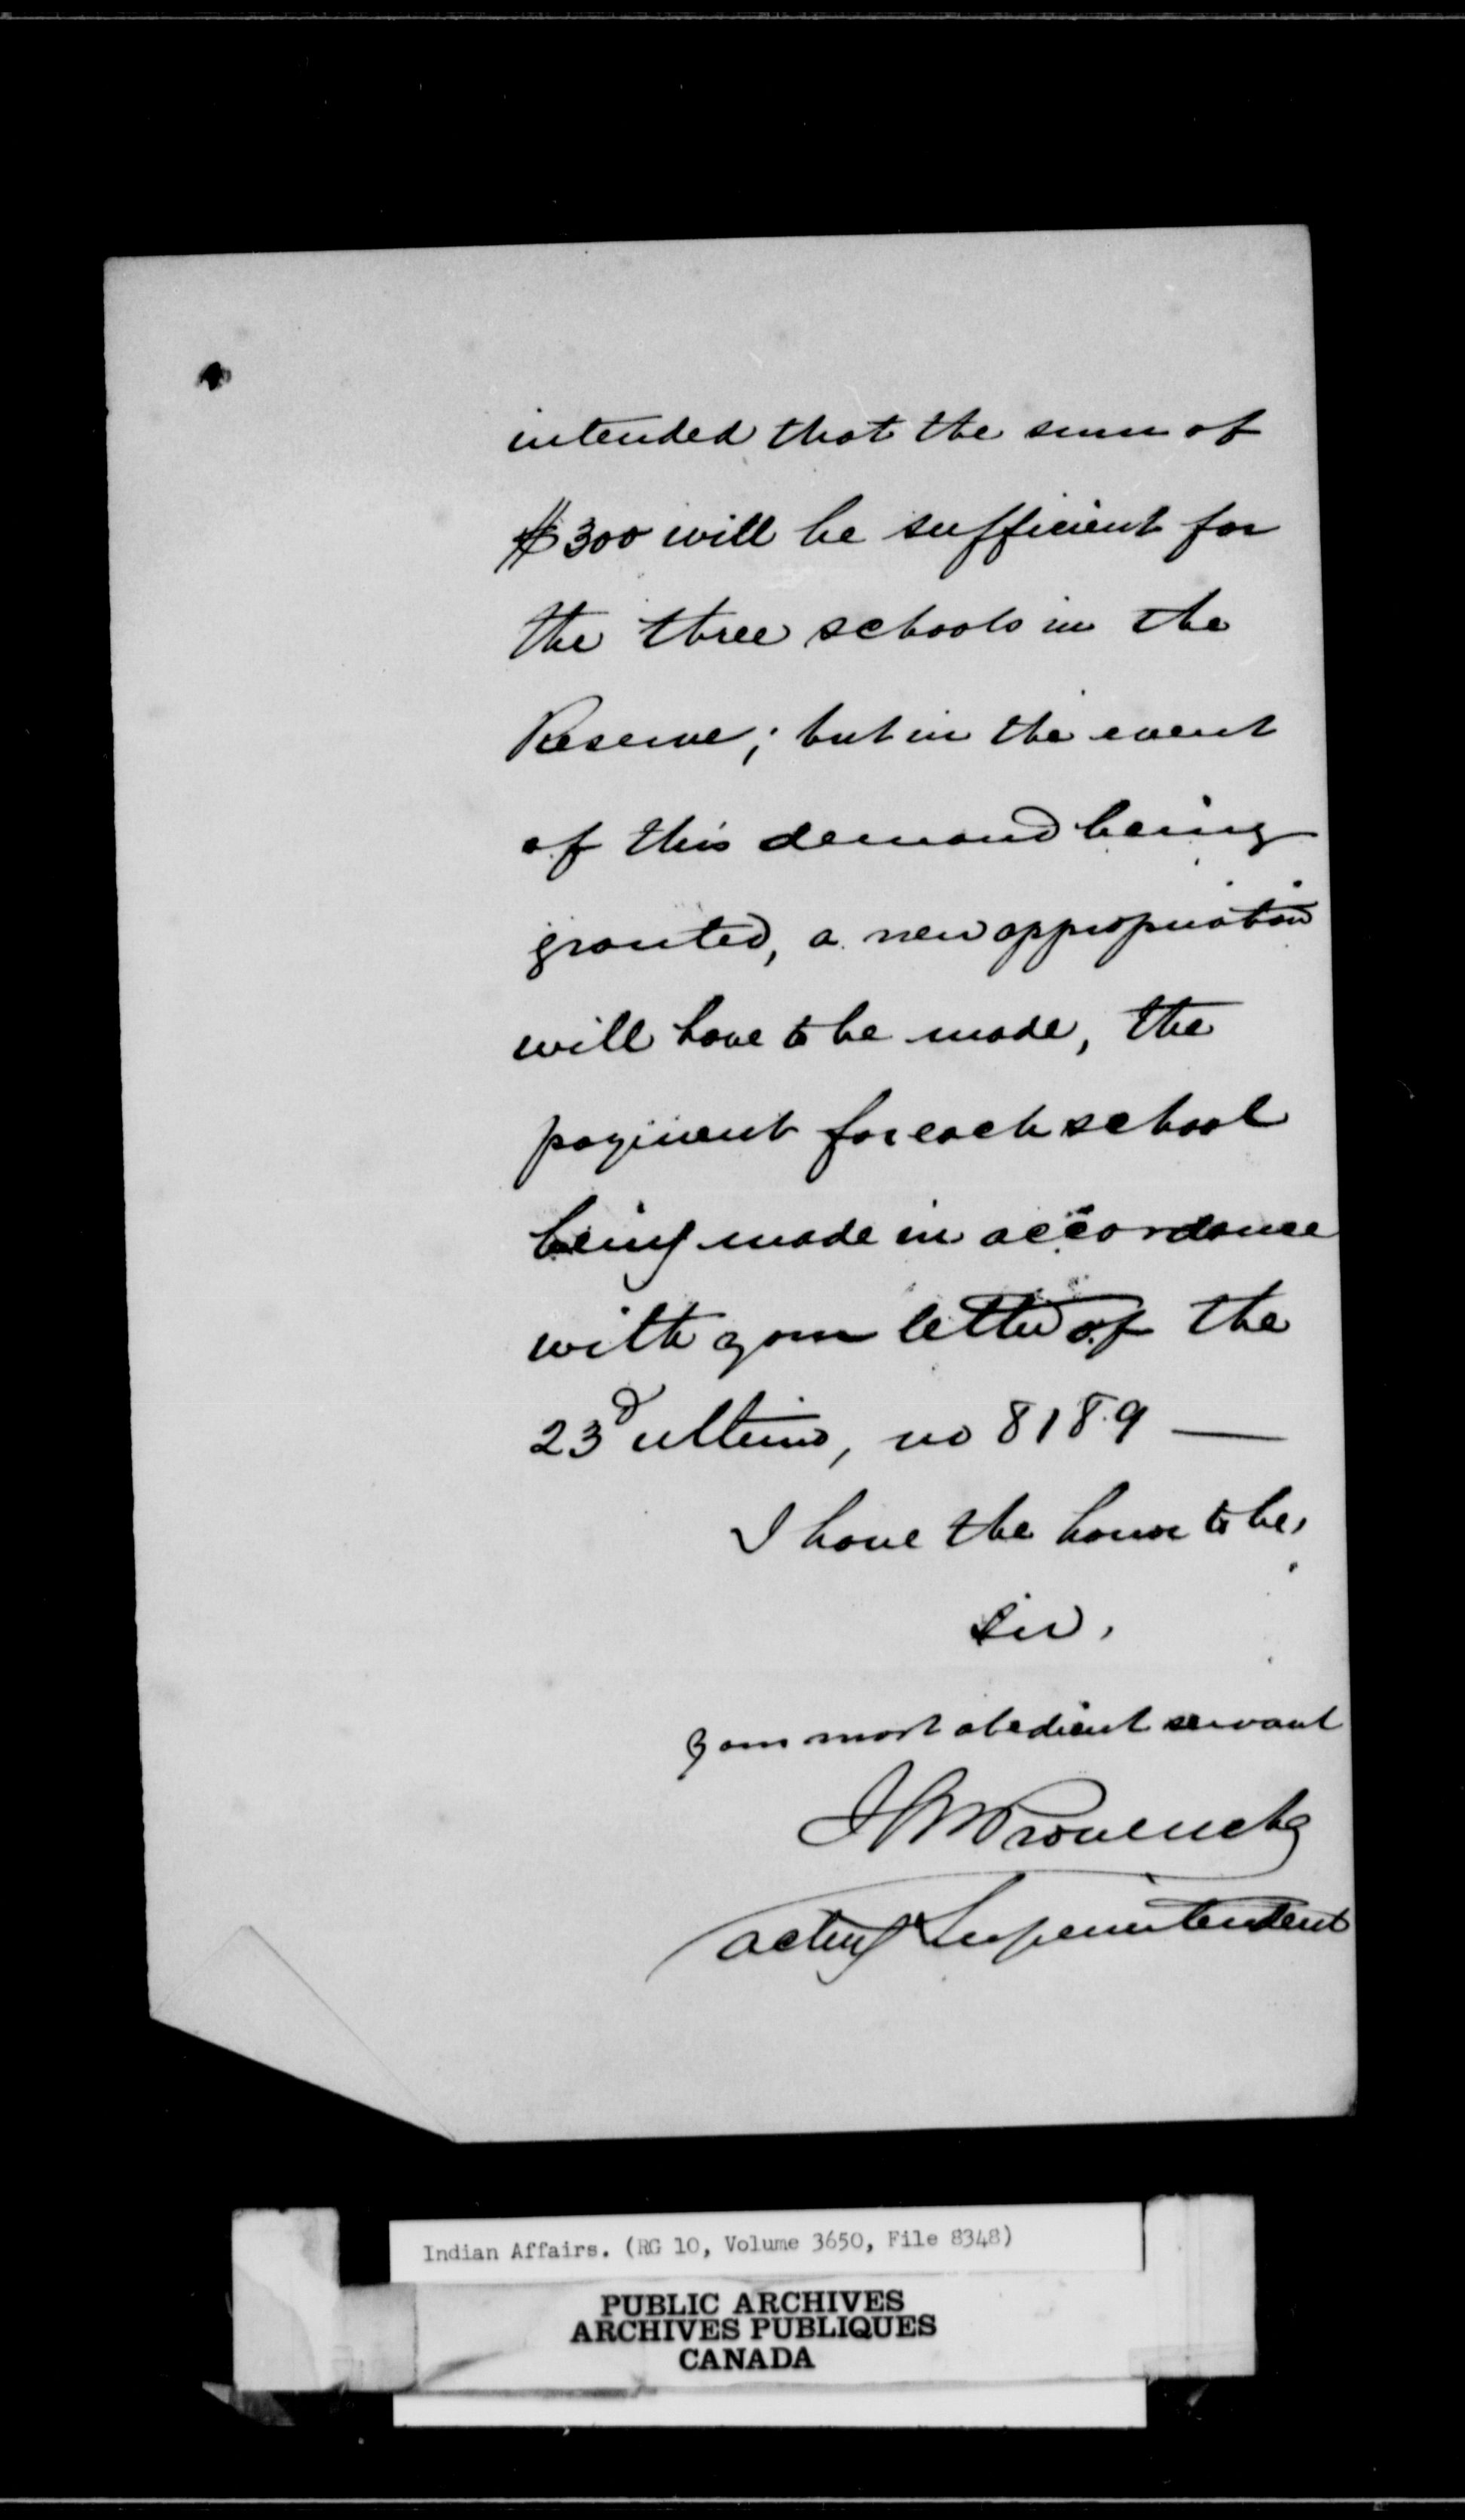 intended that the sum of
$300 will be sufficient for
the three schools in the
Reserve; but in the event
of this demand being
granted, a new appropriation
will have to be made, the
payment for each school
being made in accordance
with your letter of the
23d ultimo, no 8189 —
I have the honor to be,
Sir,
your most obedient servant
J A N Provencher
acting Superintendent
Indian Affairs. (RG 10, Volume 3650, File 8348)
PUBLIC ARCHIVES
ARCHIVES PUBLIQUES
CANADA